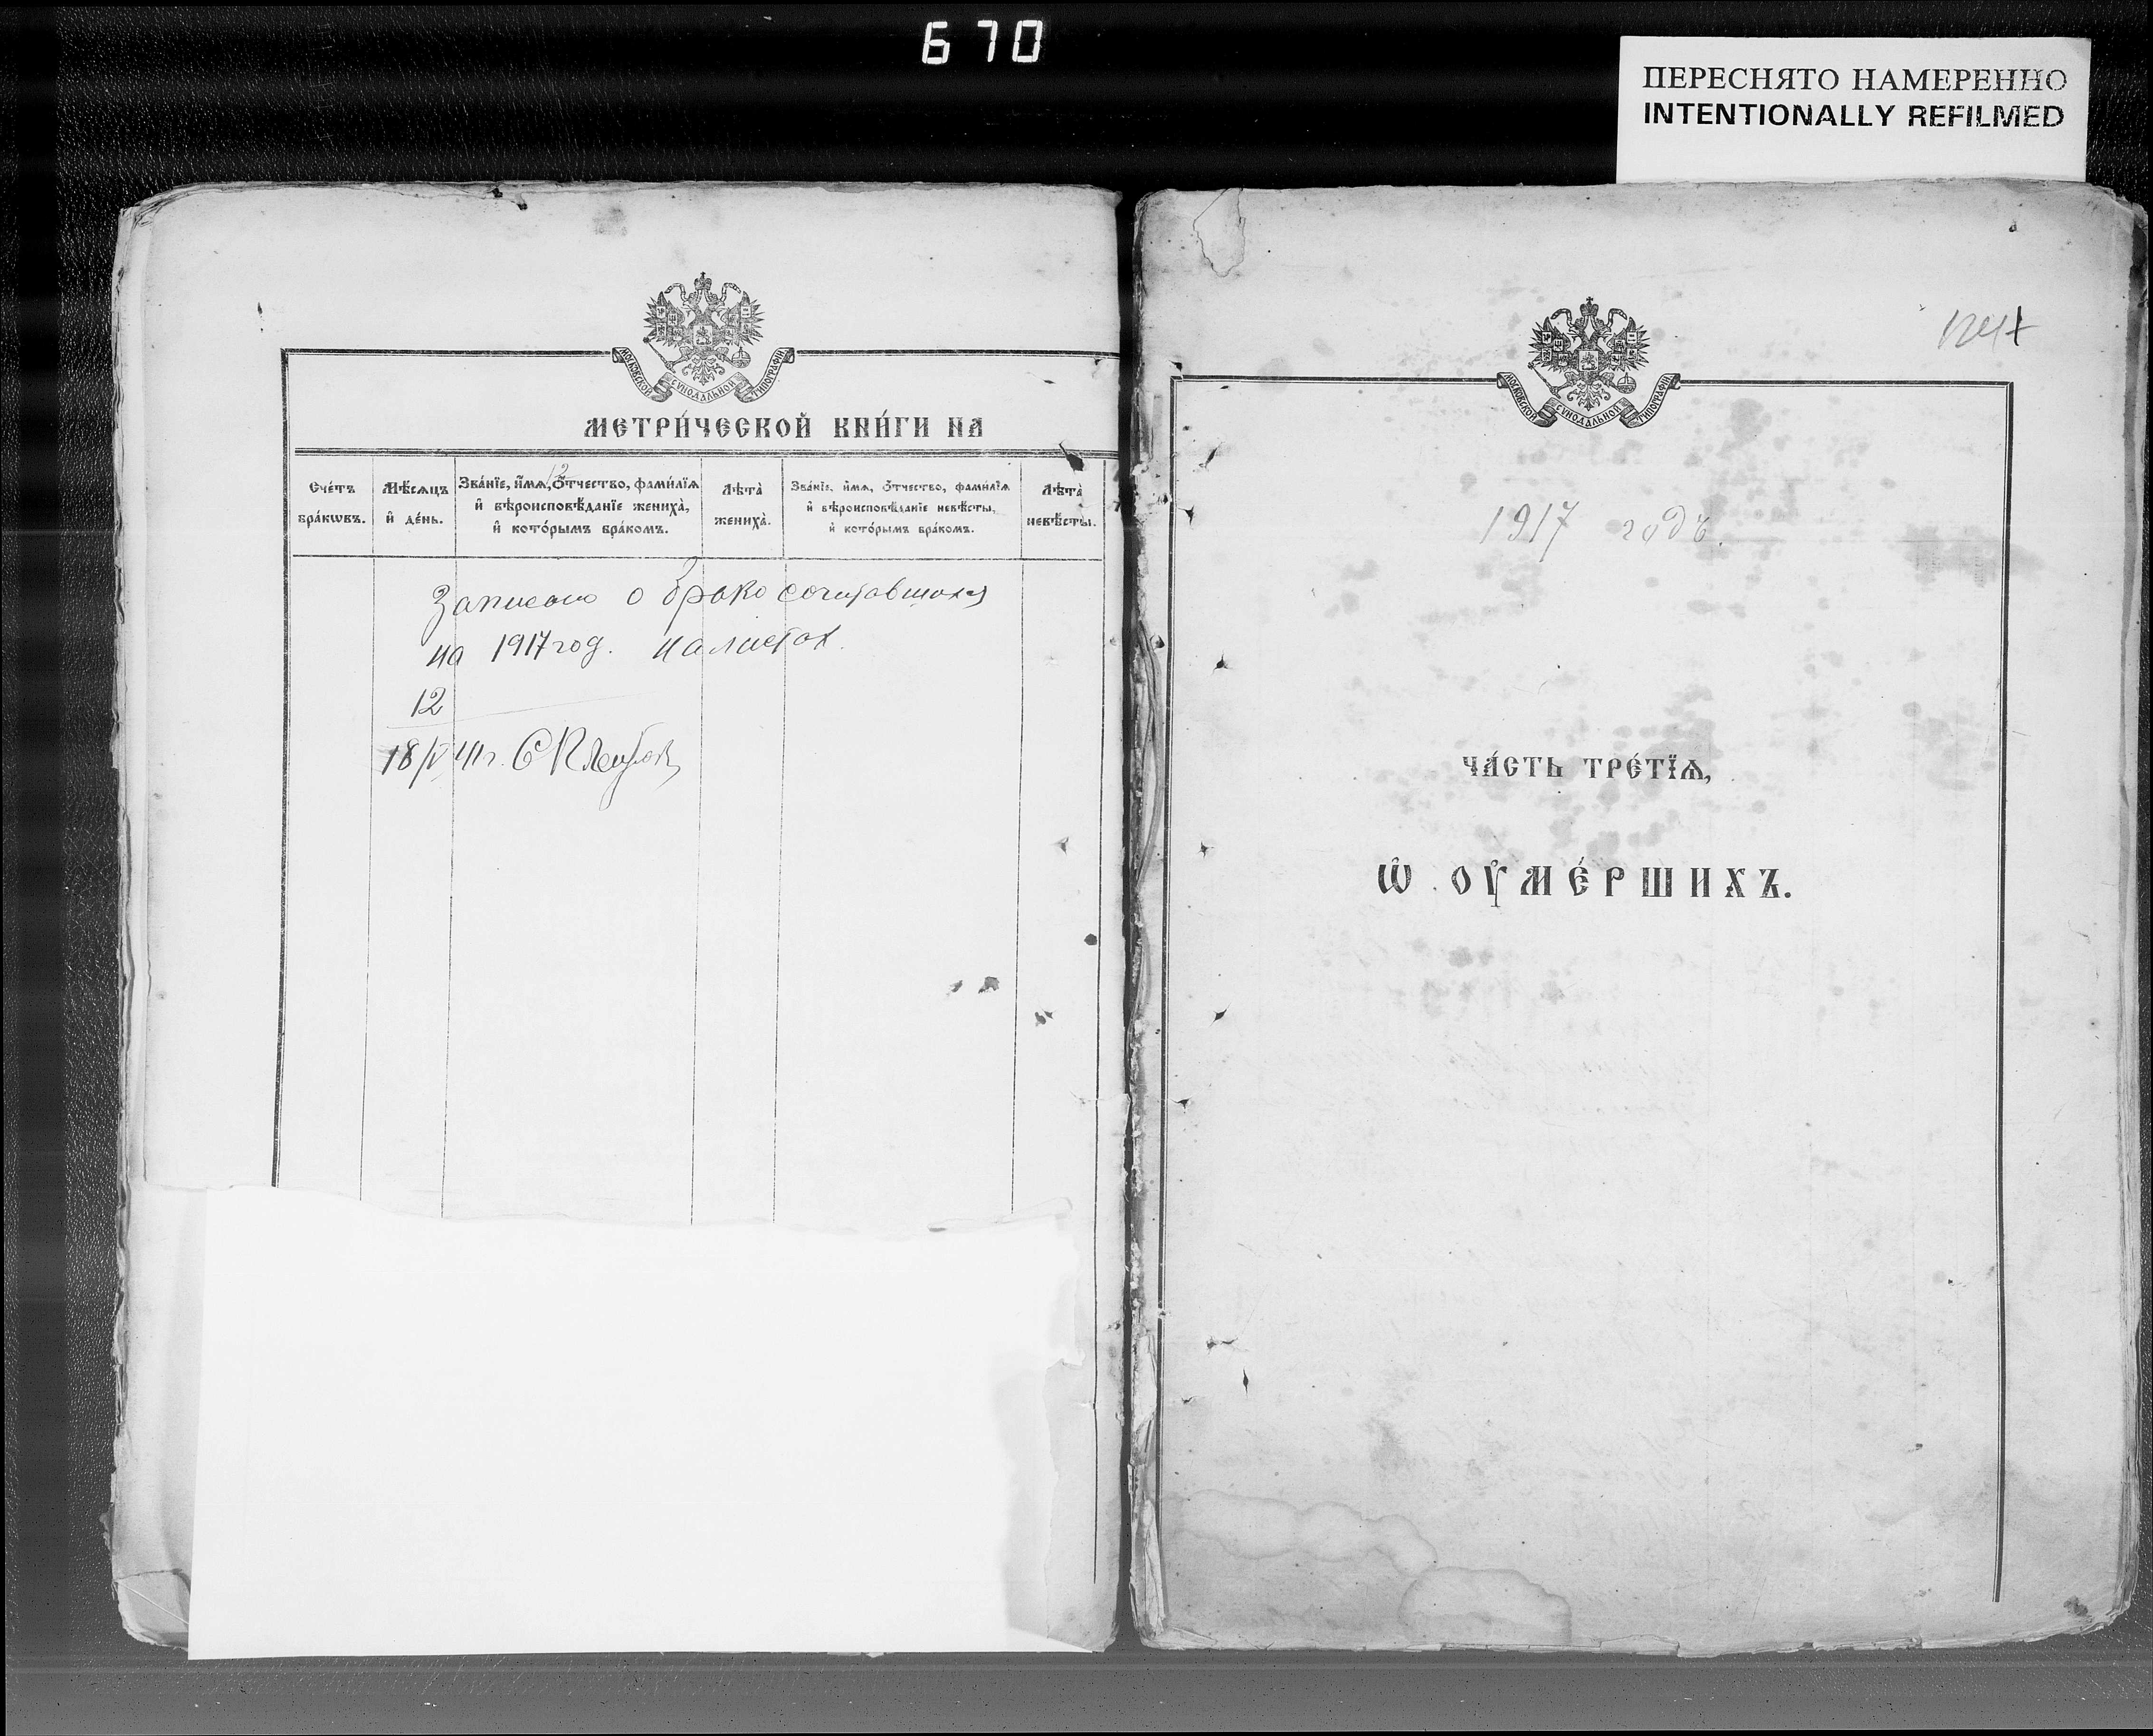 670
ПЕРЕСНЯТО НАМЕРЕННО
INTENTIONALLY REFILMED
МОСКОВСКОЙ СѴНОДАЛЬНОЙ ТИПОГРАФІИ
МЕТРИ́ЧЕСКОЙ КНИ́ГИ НА
Сче́тъ бра́кѡвъ.
Мѣ́сяцъ и҆ де́нь.
12
Зва́нїе, и҆́мѧ, ѻ҆́тчество, фами́лїѧ
и҆ вѣроисповѣ́данїе жениха̀,
и҆ кото́рымъ бра́комъ.
Лѣта̀ жениха̀.
Зва́нїе, и҆́мѧ, ѻ҆́тчество, фами́лїѧ
и҆ вѣроисповѣ́данїе невѣ́сты,
и҆ кото́рымъ бра́комъ.
Лѣта̀ невѣ́сты.
Записано о бракосочитавшихся
на 1917 год. на листах.
12
18/IV 41 г.
МОСКОВСКОЙ СѴНОДАЛЬНОЙ ТИПОГРАФІИ
1917 годъ.
ЧА́СТЬ ТРЕ́ТЇѦ,
Ѡ҆ ОУ҆МЕ́РШИХЪ.